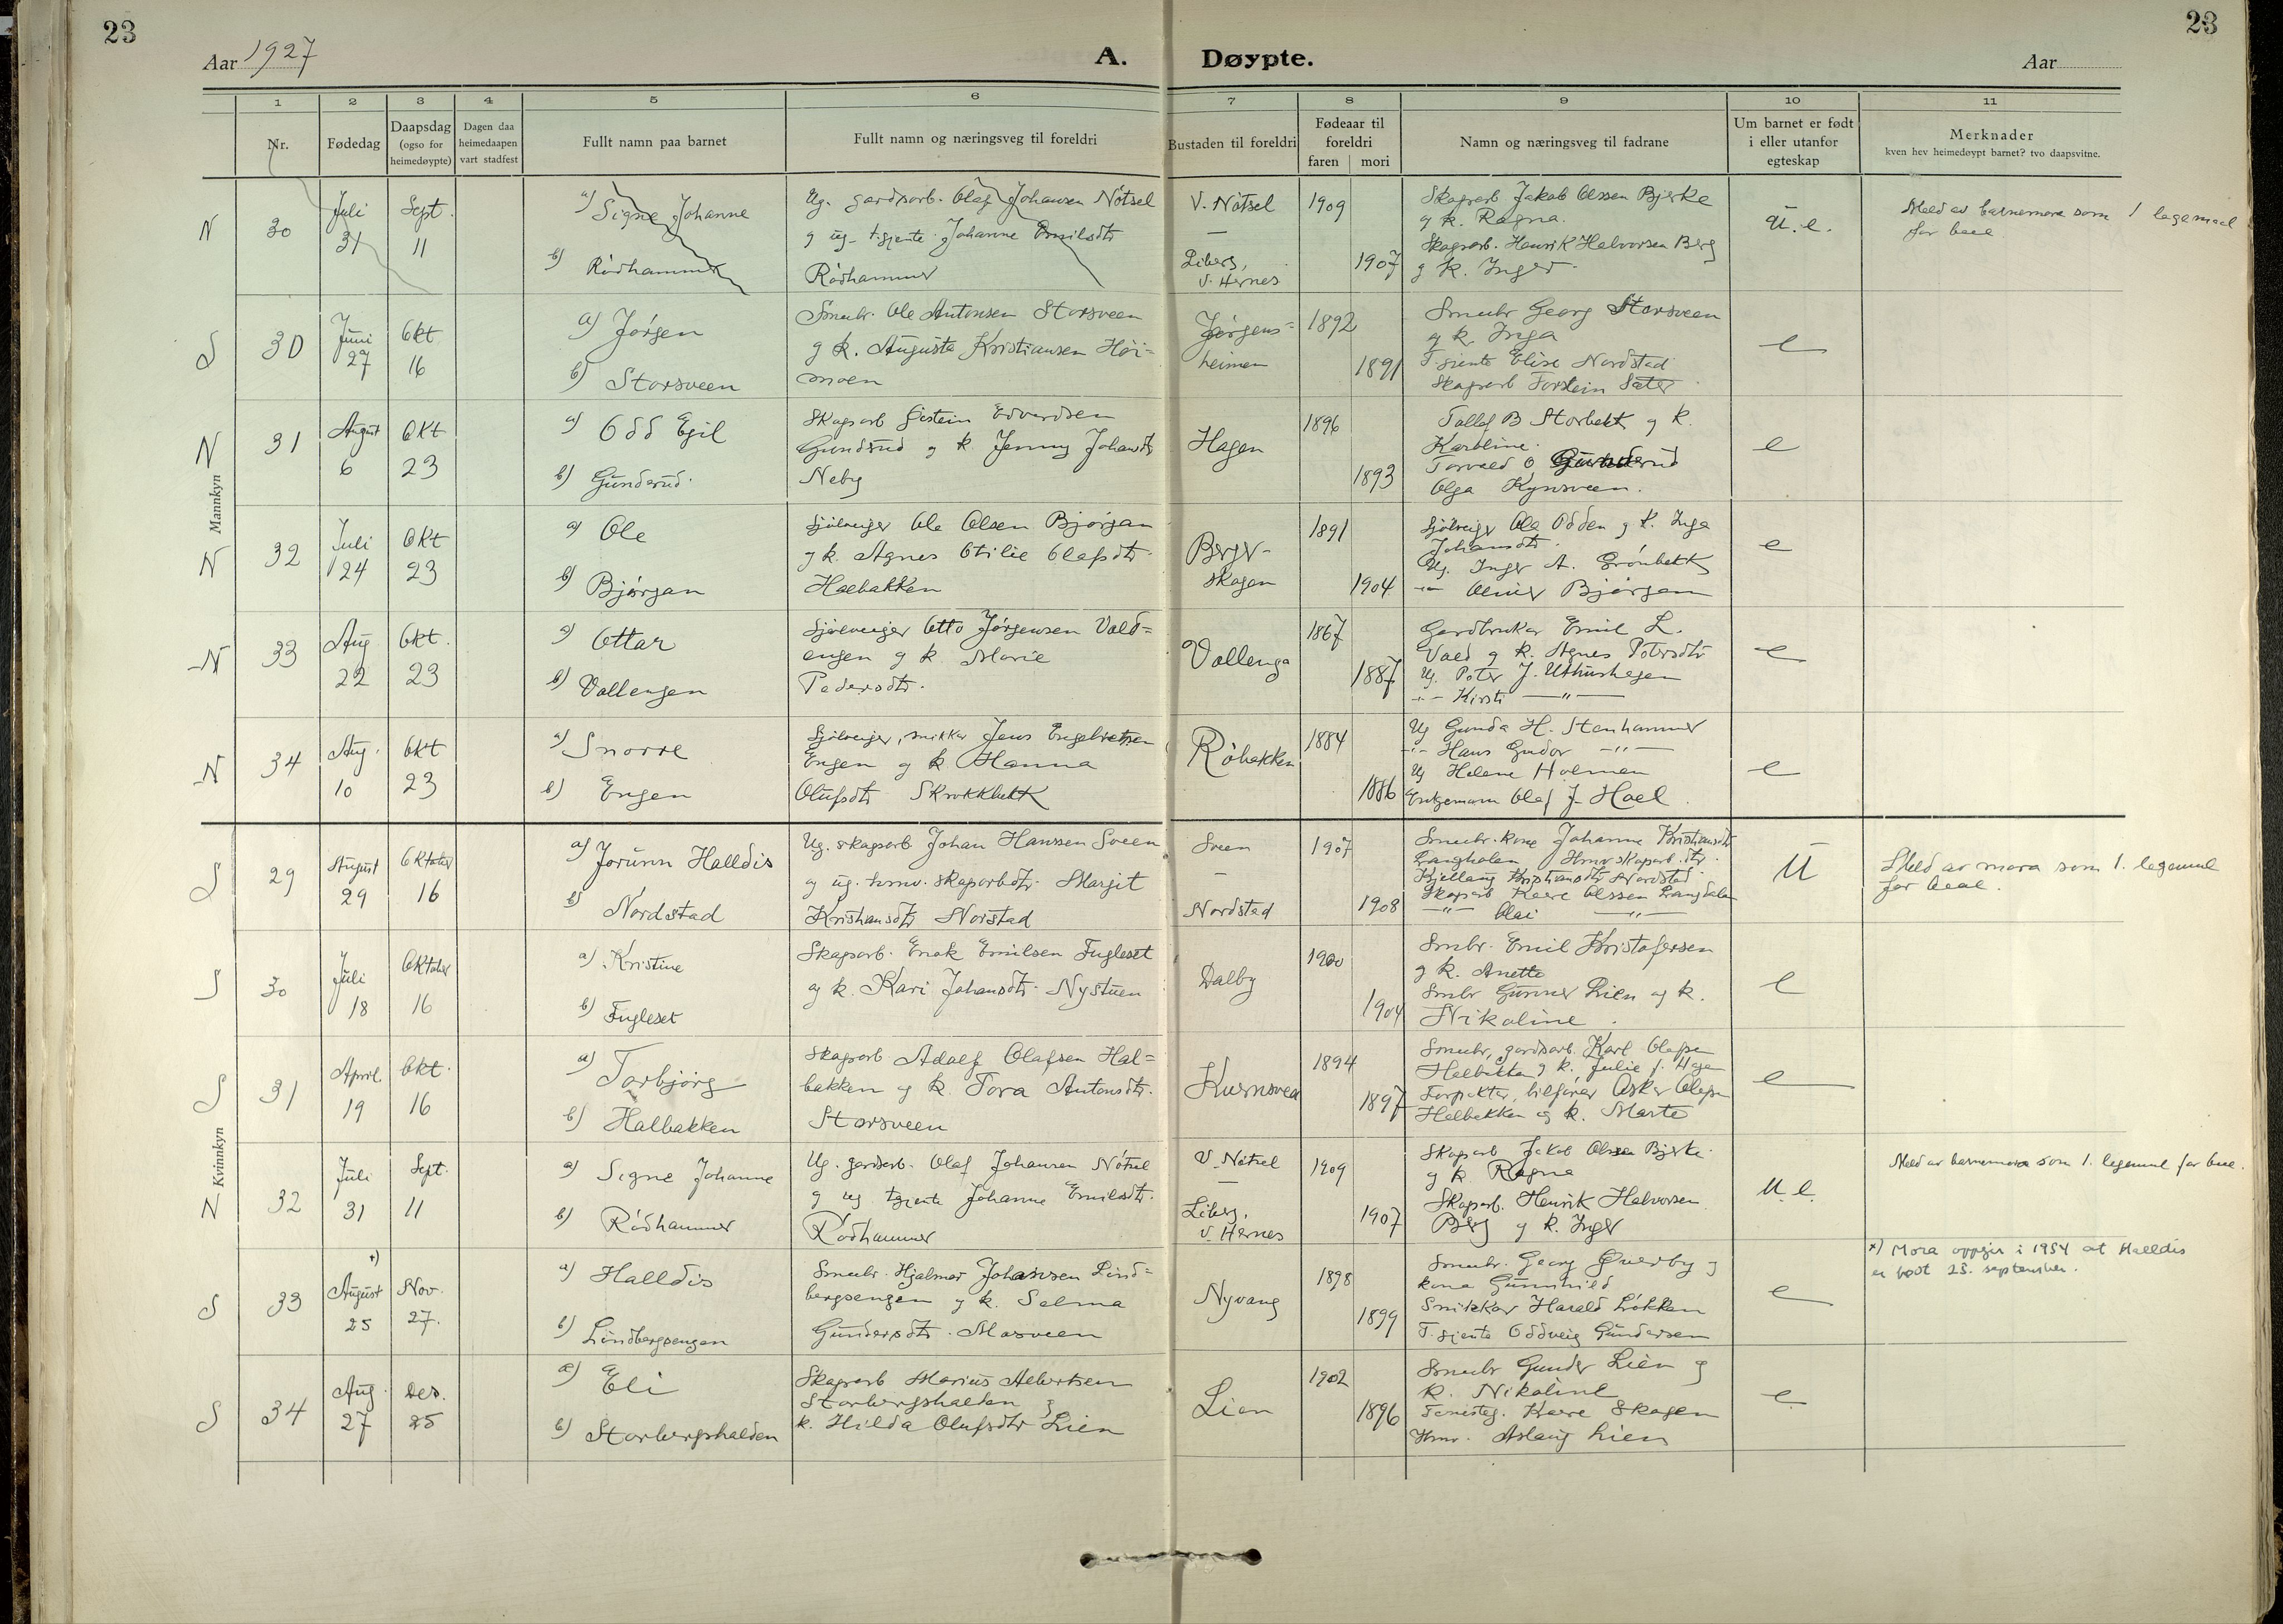 23
23
Aar 1927
A. Døypte.
Aar
1 2 3 4 5 6 7 8 9 10 11
Nr.
Fødedag
Daapsdag
(ogso for
heimedøypte)
Dagen daa
heimedaapen
vart stadfest
Fullt namn paa barnet
Fullt namn og næringsveg til foreldri
Bustaden til foreldri
Fødeaar til
foreldri
faren mori
Namn og næringsveg til fadrane
Um barnet er født
i eller utanfor
egteskap
Merknader
kven hev heimedøypt barnet? tvo daapsvitne.
Mannkyn
N 30
Juli 31
Sept. 11
a) Signe Johanne
b) Rødhammer
Ug. gardsarb. Olaf Johansen Nötsel
g ug. t.gjente Johanne Emilsdtr
Rødhammer
V. Nötsel
—
Liberg,
V. Hernes
1909
1907
Skogsarb. Jakob Olssen Bjerke
g k. Ragna.
Skogsarb. Henrik Halvorsen Berg
g k. Inger.
u. e.
Meld av barnemora som 1 legemaal
for bæe
S 30
Juni 27
Okt 16
a) Jørgen
b) Storsveen
Smubr. Ole Antonsen Storsveen
g k. Augusta Kristiansen Høi=
moen
Jørgens=
heimen
1892
1891
Smubr Georg Storsveen
g k. Inga
T.gjente Elise Nordstad
Skogsarb Torstein Sæter
e
N 31
August 6
Okt 23
a) Odd Egil
b) Gunderud
Skogsarb Østein Edvardsen
Gunderud g k. Jenny Johansdtr
Neby
Hagen
1896
1893
Tollef B Storbekk g k.
Karoline.
Torvald O. Gunderud
Olga Kynsveen.
e
N 32
Juli 24
Okt 23
a) Ole
b) Bjørgan
Sjølveiger Ole Olsen Bjørgan
g k. Agnes Otilie Olafsdtr.
Haebakken
Berger-
skogen
1891
1904
Sjølveiger Ole Odden g k. Inga
Johansdtr.
Ug. Inger A. Grønbekk
-"- Oliver Bjørgan
e
N 33
Aug 22
Okt. 23
a) Ottar
b) Vollengen
Sjølveiger Otto Jørgensen Vold=
engen g k. Marie
Pedersdtr.
Vollenga
1867
1887
Gardbruker Emil L.
Vold g k. Agnes Petersdtr
Ug. Peter J. Uthushagen
-"- Kirsti —"—
e
N 34
Aug. 10
Okt 23
a) Snorre
b) Engen
Sjølveiger, snikkar Jens Engebretsen
Engen g k Hanna
Olufsdtr Skrokkbekk
Røbakken
1884
1886
Ug Gunda H. Stenhammer
-"- Hans Gudor —"—
Ug Helene Holmen
Enkjemann Olaf J. Hoel.
e
Kvinnkyn
S 29
August 29
Oktober 16
a) Jorunn Halldis
b) Nordstad
Ug. skogsarb Johan Hanssen Sveen
g ug. hmv. skogsarbdtr. Margit
Kristiansdtr Norstad
Sveen
—
Nordstad
1907
1908
Smubr.kone Johanne Kristiansdtr
Kjellaug Kristiansdtr Nordstad
Skogsarb Kaare Olssen
—"— Olai —"—
U
Meld av mora som 1. legemaal
for bæe.
S 30
Juli 18
Oktober 16
a) Kristine
b) Fugleset
Skogsarb. Enok Emilsen Fugleset
og k. Kari Johansdtr. Nystuen
Dalby
1900
1904
Smbr. Emil Kristofersen
g k. Anette
Smbr Gunner Lien og k.
Nikoline.
e
S 31
April 19
Okt. 16
a) Torbjørg
b) Halbakken
Skogsarb Adolf Olafsen Hal=
bakken g k. Tora Antonsdtr.
Storsveen
Kvernsvea
1894
1897
Smubr, gardsarb. Karl Olafsen
Halbakken g k. Julie f. Hagen
Forpakter, bilførar Asker Olafsen
Halbakken og k. Marte
e
N 32
Juli 31
Sept. 11
a) Signe Johanne
b) Rødhammer
Ug. gardsarb. Olaf Johansen Nötsel
g ug tgjente Johanne Emilsdtr.
Rødhammer
V. Nötsel
—
Liberg,
V. Hernes
1909
1907
Skogsarb Jakob Olssen Bjerke.
g k. Ragna
Skogsarb. Henrik Halvorsen
Berg g k. Inger
u. e.
Meld av barnemora som 1. legemaal for bæe.
S 33
x)
August 25
Nov. 27.
a) Halldis
b) Lindbergsengen
Smubr. Hjalmar Johansen Lind=
bergsengen g k. Selma
Gundersdtr. Mosveen
Nyvang
1898
1899
Smubr. Georg Øverby g
kona Gunnhild
Snikkar Harald Løkken
T.gjente Oddveig Gundersen
e
x) Mora oppgir i 1954 at Halldis
er født 25. september.
S 34
Aug. 27
Des. 25
a) Eli
b) Storbergshalden
Skogsarb Marius Albertsen
Storbergshalden g
k. Hilda Olufsdtr Lien
Lien
1902
1896
Smubr Gunder Lien g
k. Nikoline
Kaare Skogen
Hmv. Aslaug Lien
e